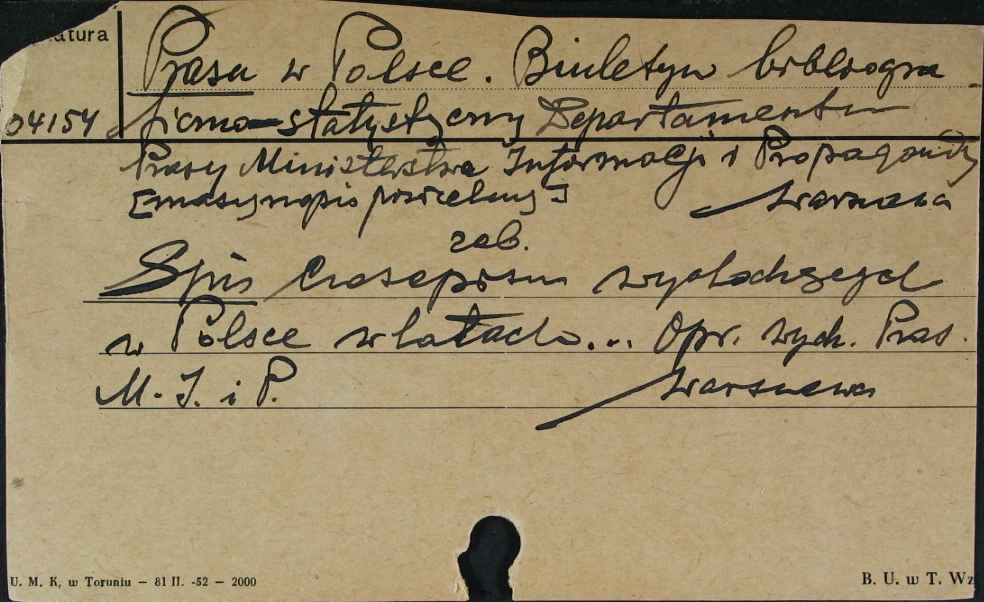 atura
Prasa w Polsce. Biuletyn bibliogra
04154 ficzno-statystyczny Departamentu
Prasy Ministerstwa Informacji i Propagandy
[maszynopis powielany] Warszawa
zob.
Spis czasopism wychodzących
w Polsce w latach... Opr. Wych. Pras.
M. I. i P. Warszawa
U. M. K. w Toruniu — 81 II. -52 — 2000
B. U. w T. Wz